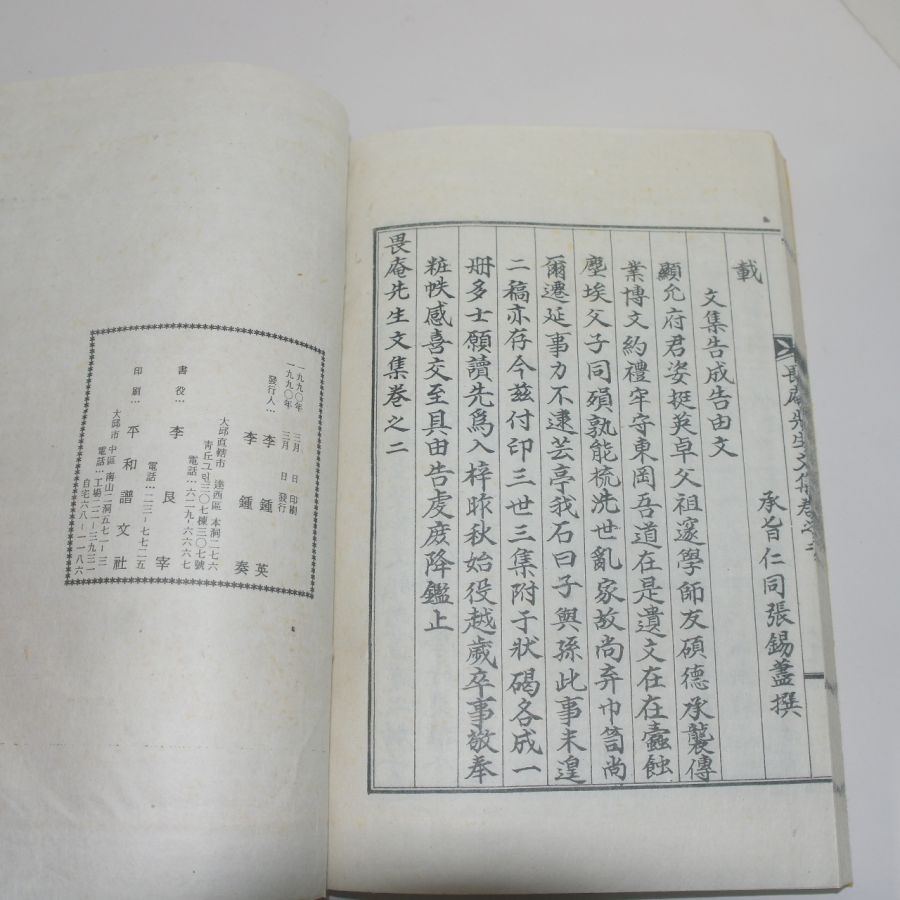 畏庵先生文集卷之二
承旨仁同張錫藎撰
載
文集告成告由文
顯允府君姿挺英卓父祖邃學師友碩德承襲傳
業博文約禮牢守東岡吾道在是遺文在在蠹蝕
塵埃父子同殞孰能梳洗世亂家故尚弃巾笥尚
爾遷延事力不逮芸亭我石曰子與孫此事未遑
二稿亦存今玆付印三世三集附于狀碣各成一
冊多士願讀先爲入梓昨秋始役越歲卒事敬奉
粧帙感喜交至具由告虔庶降鑑止
畏庵先生文集卷之二
一九九〇年 三月 日 印刷
一九九〇年 三月 日 發行
發行人… 李 鍾 英
李 鍾 奏
大邱直轄市 達西區 本洞二七六
靑丘그린三〇七棟三〇七號
電話…六二九-六六六七
書 役… 李 良 宰
電話…二三-七七二五
印 刷… 平 和 譜 文 社
大邱市 中區 南山二洞五七一-三
電話…工場二二-三九三一
自宅六八-一一八六